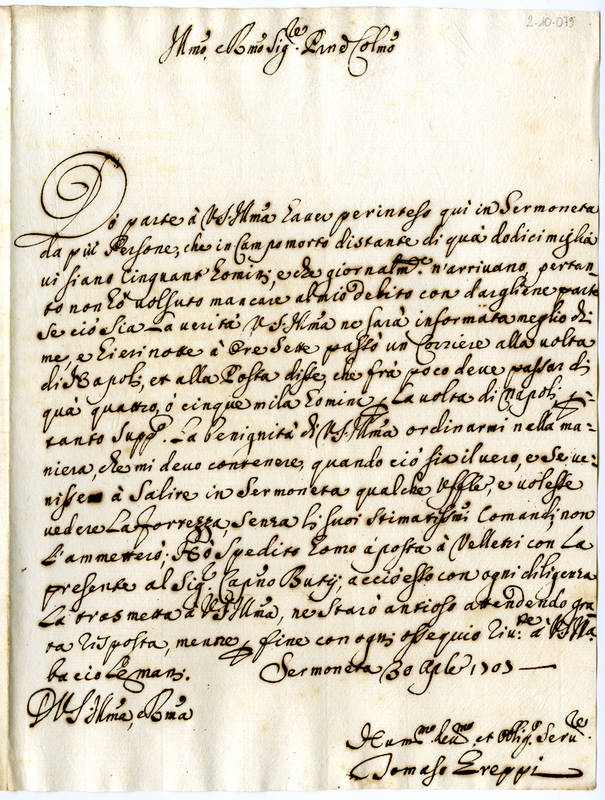 2-10-079
Illmo, e Rmo Sigre Prnd Colmo
Dó parte à V.S.Illma hauer perinteso qui in Sermoneta
da piú Persone, che in Campomorto distante di quà dodici miglia
ui siano Cinquant'homini, e che giornalmte n'arriuano, pertan-
to non hó uolsuto mancare al mio debito con dargliene parte
se ció sia La uerità V.S.Illma ne sarà informata meglio di
me, e hieri notte à Ore Sette passó un Corriere alla uolta
di Napoli, et alla Posta disse, che frà poco deue passar di
quà quattro, ó cinque mila homini La uolta di Napoli,
tanto suppo. La benignità di V.S.Illma ordinarmi nella ma-
niera, che mi deuo contenere, quando ció sia il uero, e se ue-
nisse à Salire in Sermoneta qualche Uffle, e uolesse
uedere La forrezza, senza li suoi stimatissimi Comandi, non
L'ammetteró; Hó spedito homo à posta à Velletri con La
presente al Sigr Capno Butij, accióesso con ogni diligenza
La trasmetta à V.S.Illma, ne staró antioso attendendo gra-
ta risposta, mentre fine con ogni ossequio riu.te à V.S.Illa
bacio Le mani. Sermoneta 30 Aple 1707
D V.S.Illma, e Rma
Hummo. deumo, et oblig. Serue
Tomaso Greppi